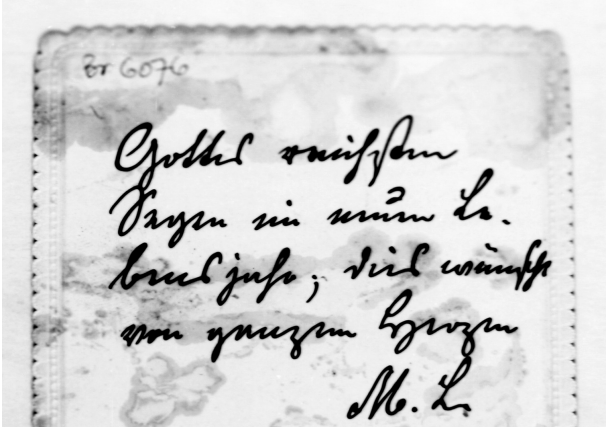 Br 6076
Gottes reichsten
Segen im neuen Le-
bensjahr; dies wünscht
von ganzem Herzen
M. L.